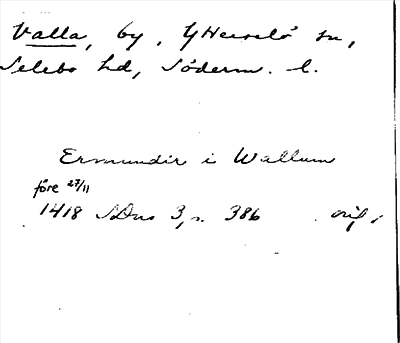 Valla, by, YHerselö sn,
Selebo hd, Söderm. l.
Ermundir i Wallum
före 27/11
1418 SDns 3, s. 386 orig.